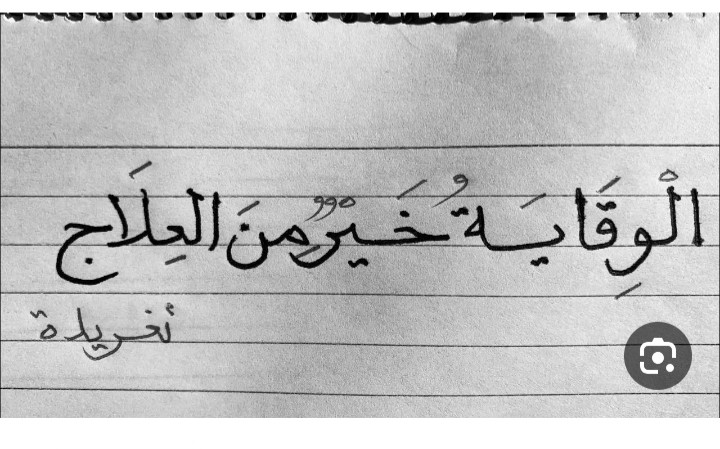 الْوِقَايَةُ خَيْرٌ مِنَ العِلَاج
تغريدة